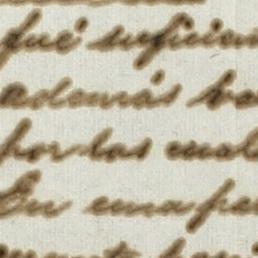 fué suficien
además ba
por las cual
En una pe